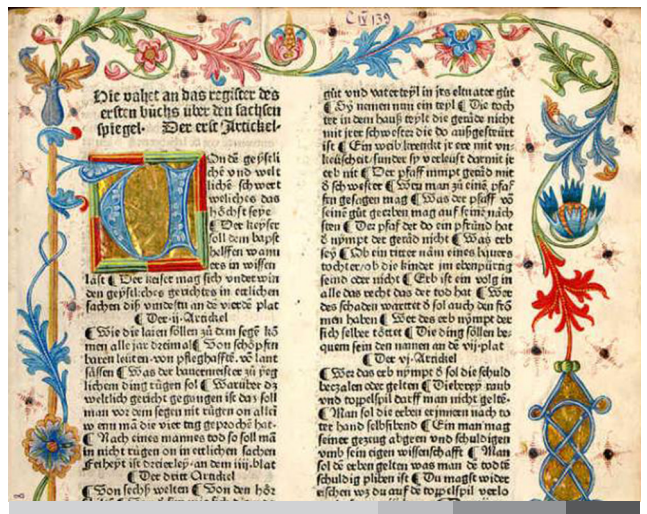 C IV 139
Hie vahet an das register des
ersten buͦchs über den sachsen
spiegel. Der erst Artickel.
Von dē geystli
chē vnd welt
lichē schwert
welches das
hoͤchst seye
¶ Der keyser
soll dem bapst
helffen wann
er es in wissen
last ¶ Der keiser mag sich vnderwin
den geystliches gerichtes in etlichen
sachen diß vindestu an dē vierdē plat
¶ Der .ij. Artickel
¶ Wie die laien soͤllen zuͦ dem segē kō
men alle jar dreimal ¶ Von schoͤpffen
baren leüten von pfleghafftē. vō lant
saͤssen ¶ Was der baurenmeister zuͦ peg
lichem ding rügen sol ¶ Warüber dz
weltlich gericht gegangen ist das soll
man vor dem segen nit rügen on allei
w enn mā die vier tag gesprochē hat.
¶ Nach eines mannes tod so soll mā
in nicht rügen on in etlichen sachen
Freiheyt ist dreierley. an dem iiij. blat
¶ Der dritt Artickel
¶ Von sechß welten ¶ Von den hoͤr
guͦt vnd vater teyl in jrs elteruater guͦt
¶ Sy nemen nun ein teyl ¶ Die toch
ter in dem hauß teylt die gerade nicht
mit jrer schwester die do außgesteürt
ist ¶ Ein weib krenckt jr ere mit vn-
keüscheit/sunder sy verleüst darmit jr
erb nit ¶ Der pfaff nimpt gerad mit
d̕ schwester ¶ Wen man zuͦ einē pfaf
fen gesagen mag ¶ Was der pfaff vō
seinē guͦt geerben mag auf seine naͤch
sten ¶ Der pfaf der do ein pfruͤnd hat
d̕ nympt der gerad nicht ¶ Was erb
sey ¶ Ob ein ritter naͤm eines bauers
tochter/ob die kinder jm ebenpürtig
seind oder nicht ¶ Erb ist ein volg in
alle das recht das der tod hat ¶ Wer
des schaden wartet d̕ sol auch den frō
men haben ¶ Wer des erb nympt der
sich selber toͤtet ¶ Die ding soͤllen be-
quem sein den namen an dē vij. plat
¶ Der vj. Artickel
¶ Wer das erb nympt d̕ sol die schuld
bezalen oder gelten ¶ Dieberey raub
vnd toppelspil darff man nicht geltē.
¶ Man sol die erben erinnern nach to
ter hand selbsibend ¶ Ein man mag
seiner gezeug abgen vnd schuldigen
vmb sein eigen wissenschafft ¶ Man
sol dē erben gelten was man dē todtē
schuldig pliben ist ¶ Du magst wider
eischen wz du auf dē toppelspil verlo